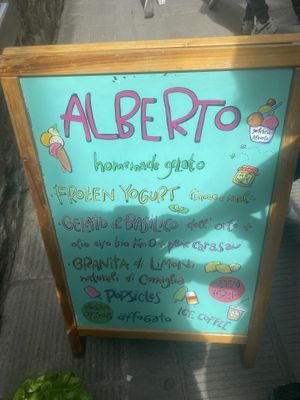 ALBERTO
homemade gelato
FROZEN YOGURT
GELATO al BASILICO dell'orto
olio evo bio Km0 pane carasau
GRANITA di LIMONI
naturali di Corniglia
POPSICLES
affogato
ICE COFFEE